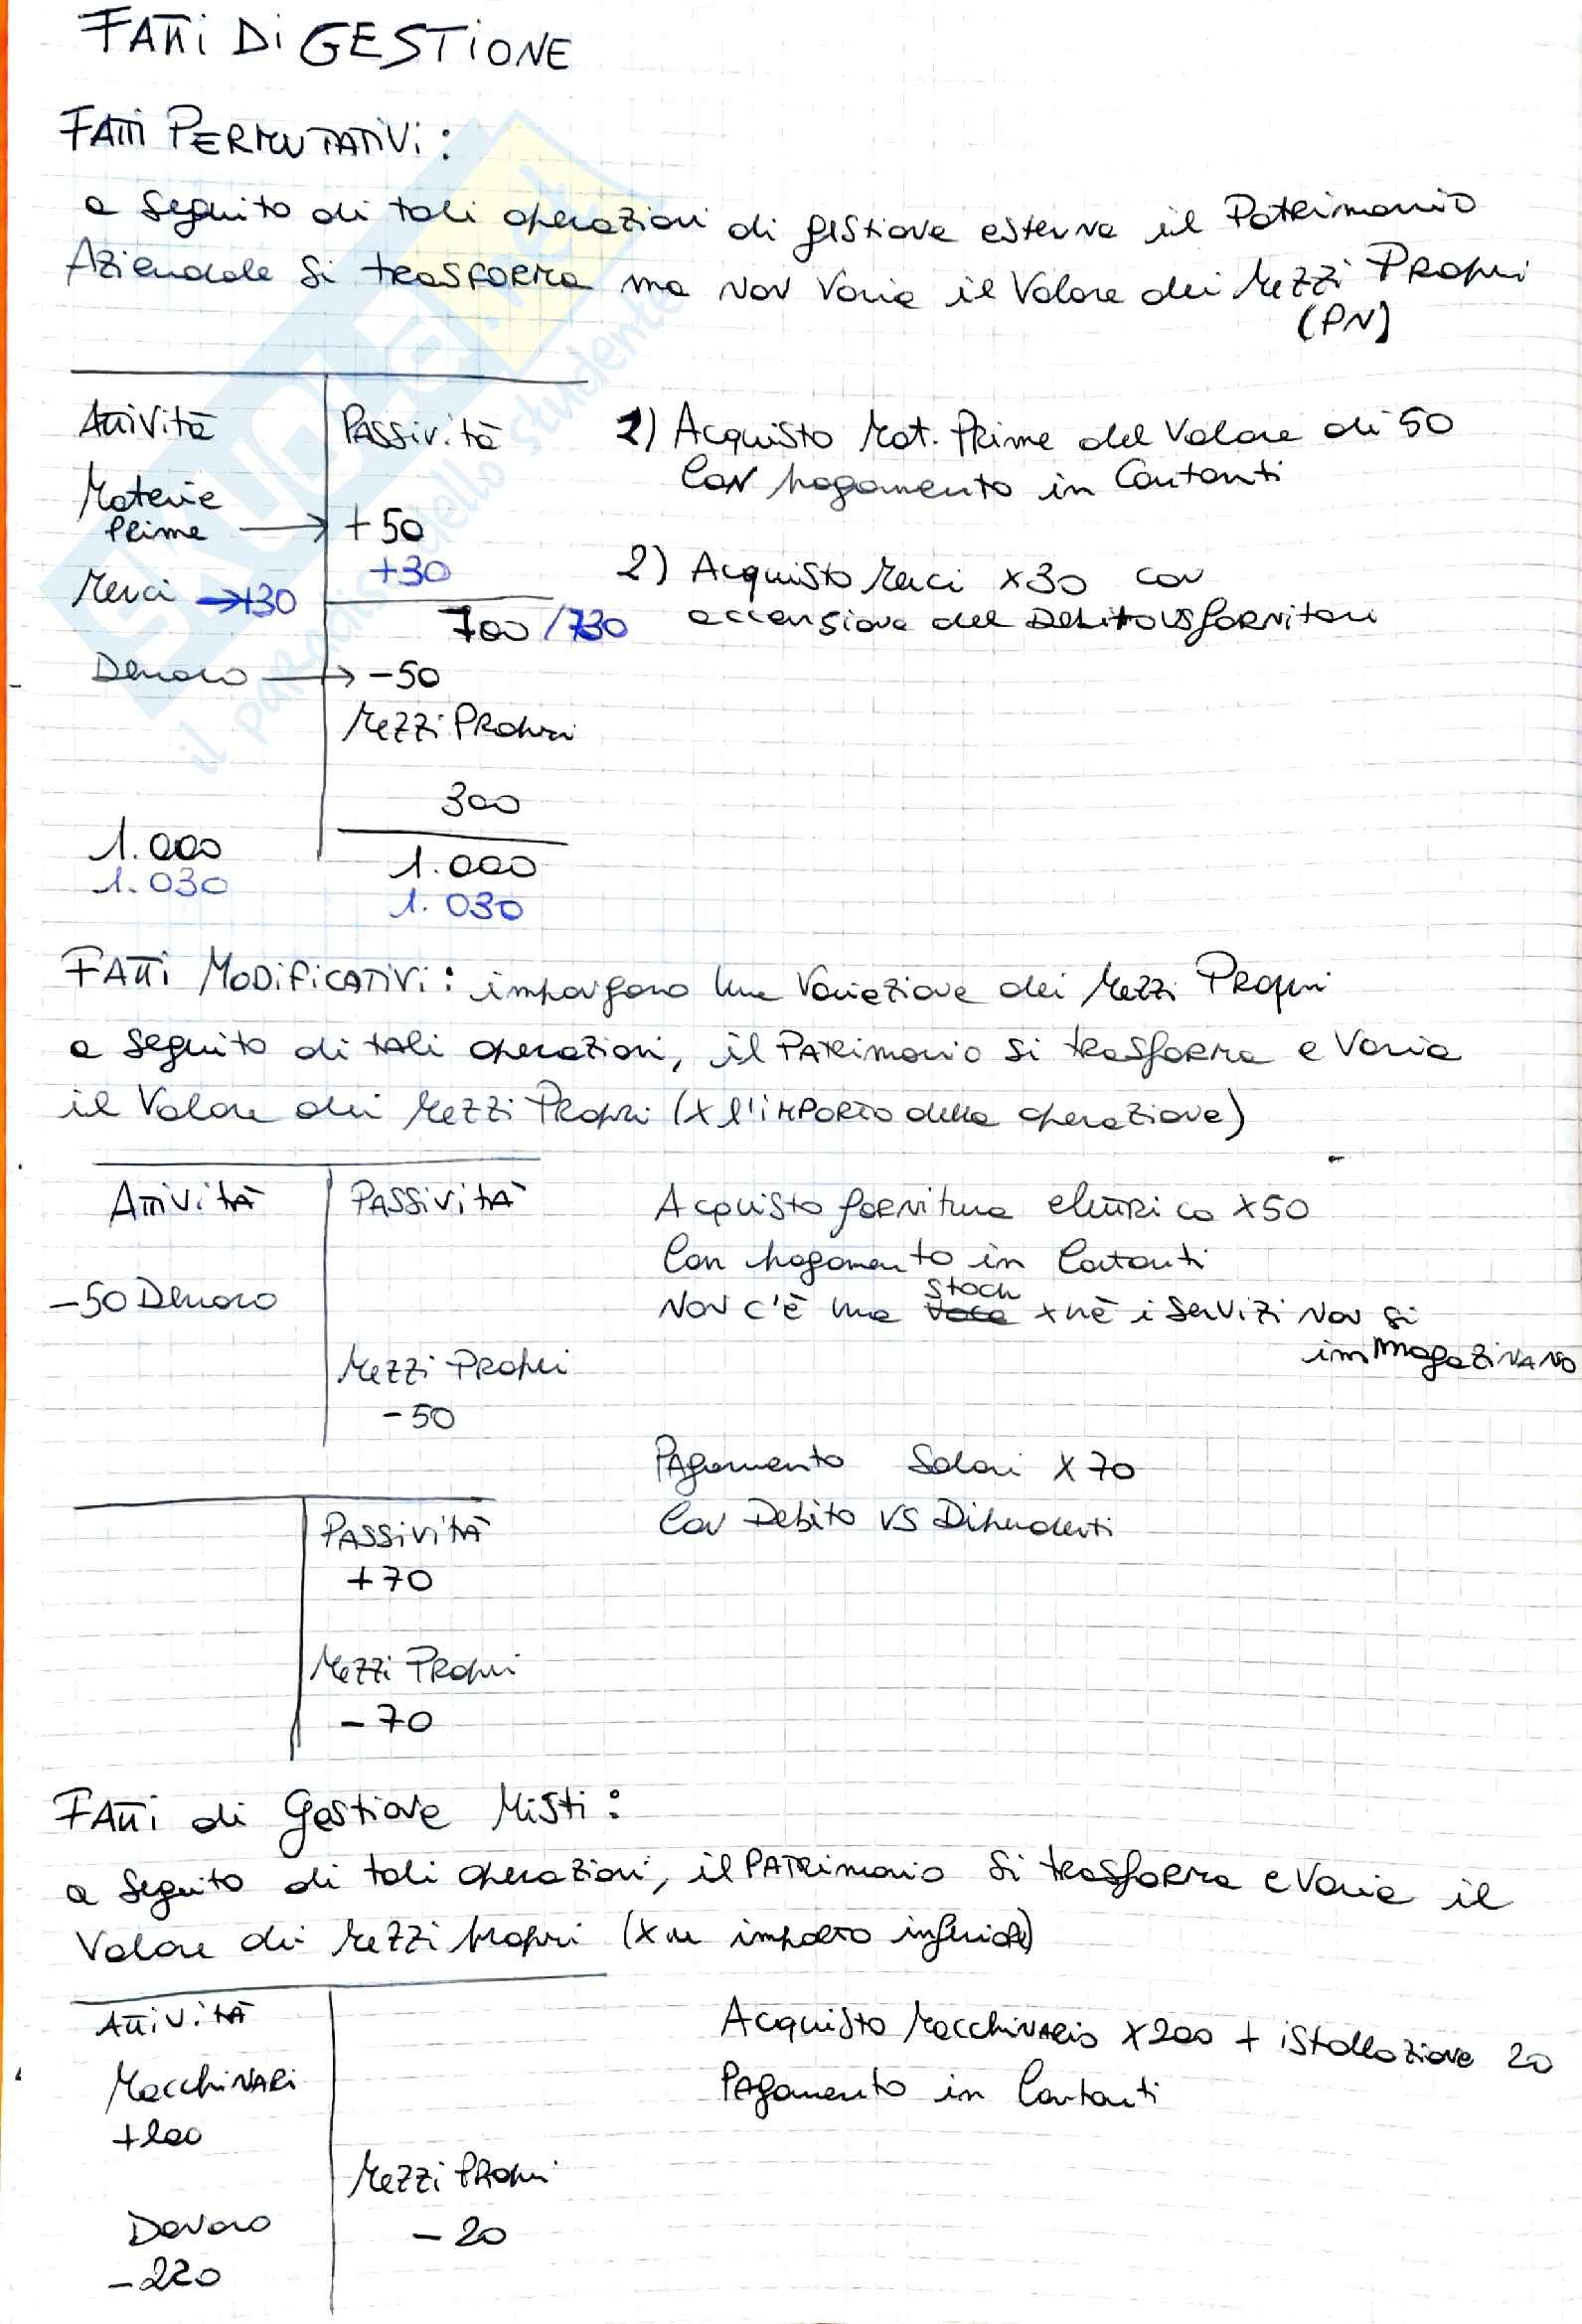 FATTI DI GESTIONE
FATTI PERMUTATIVI:
a seguito di tali operazioni di gestione esterna il Patrimonio
Aziendale si trasforma ma non varia il valore dei Mezzi Propri
(PN)
Attività
Passività
Materie
Prime → +50
+30
Merci → +30
700/730
Denaro → -50
Mezzi Propri
300
1.000
1.000
1.030
1.030
1) Acquisto Mat. Prime del valore di 50
con pagamento in contanti
2) Acquisto Merci x30 con
accensione del Debito vs fornitori
FATTI MODIFICATIVI: impongono una variazione dei Mezzi Propri
a seguito di tali operazioni, il Patrimonio si trasforma e varia
il valore dei Mezzi Propri (x l'importo della operazione)
Attività
Passività
-50 Denaro
Mezzi Propri
-50
Acquisto fornitura elettrica x50
con pagamento in contanti
stock
Non c'è una voce xchè i servizi non si
immagazzinano
Passività
+70
Mezzi Propri
-70
Pagamento Salari x70
con Debito vs Dipendenti
FATTI di Gestione Misti:
a seguito di tali operazioni, il Patrimonio si trasforma e varia il
valore dei Mezzi propri (x un importo inferiore)
Attività
Macchinari
+200
Mezzi Propri
Denaro
-20
-220
Acquisto Macchinario x200 + istallazione 20
Pagamento in contanti
SKUOLA.net
il paradiso dello studente